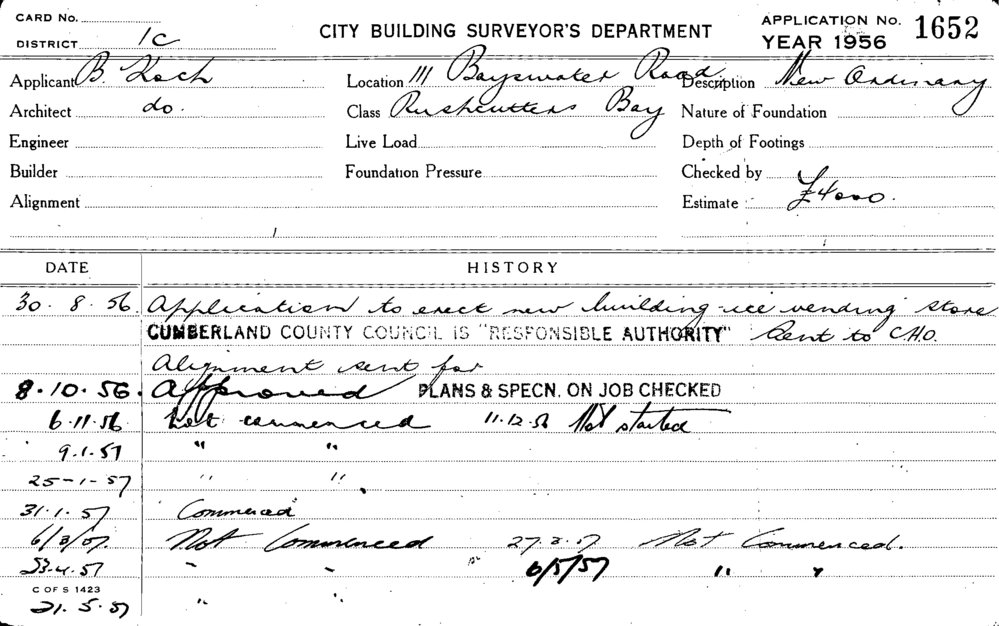 CARD No.
DISTRICT 1C
CITY BUILDING SURVEYOR'S DEPARTMENT
APPLICATION No. 1652
YEAR 1956
Applicant B. Koch Location 111 Bayswater Road Description New Ordinary
Architect do. Class Rushcutters Bay Nature of Foundation
Engineer Live Load Depth of Footings
Builder Foundation Pressure Checked by
Alignment Estimate £4000.
DATE HISTORY
30. 8. 56. Application to erect new building-ice vending store
CUMBERLAND COUNTY COUNCIL IS "RESPONSIBLE AUTHORITY" Sent to C.H.O.
Alignment sent for
8.10.56. Approved PLANS & SPECN. ON JOB CHECKED
6.11.56 Not commenced 11.12.56 Not started
9.1.57 " "
25-1-57 " "
31.1.57 Commenced
6/3/57. Not Commenced 27.3.57 Not Commenced.
23.4.57 " " 6/5/57 " "
C OF S 1423
21.5.57 " "